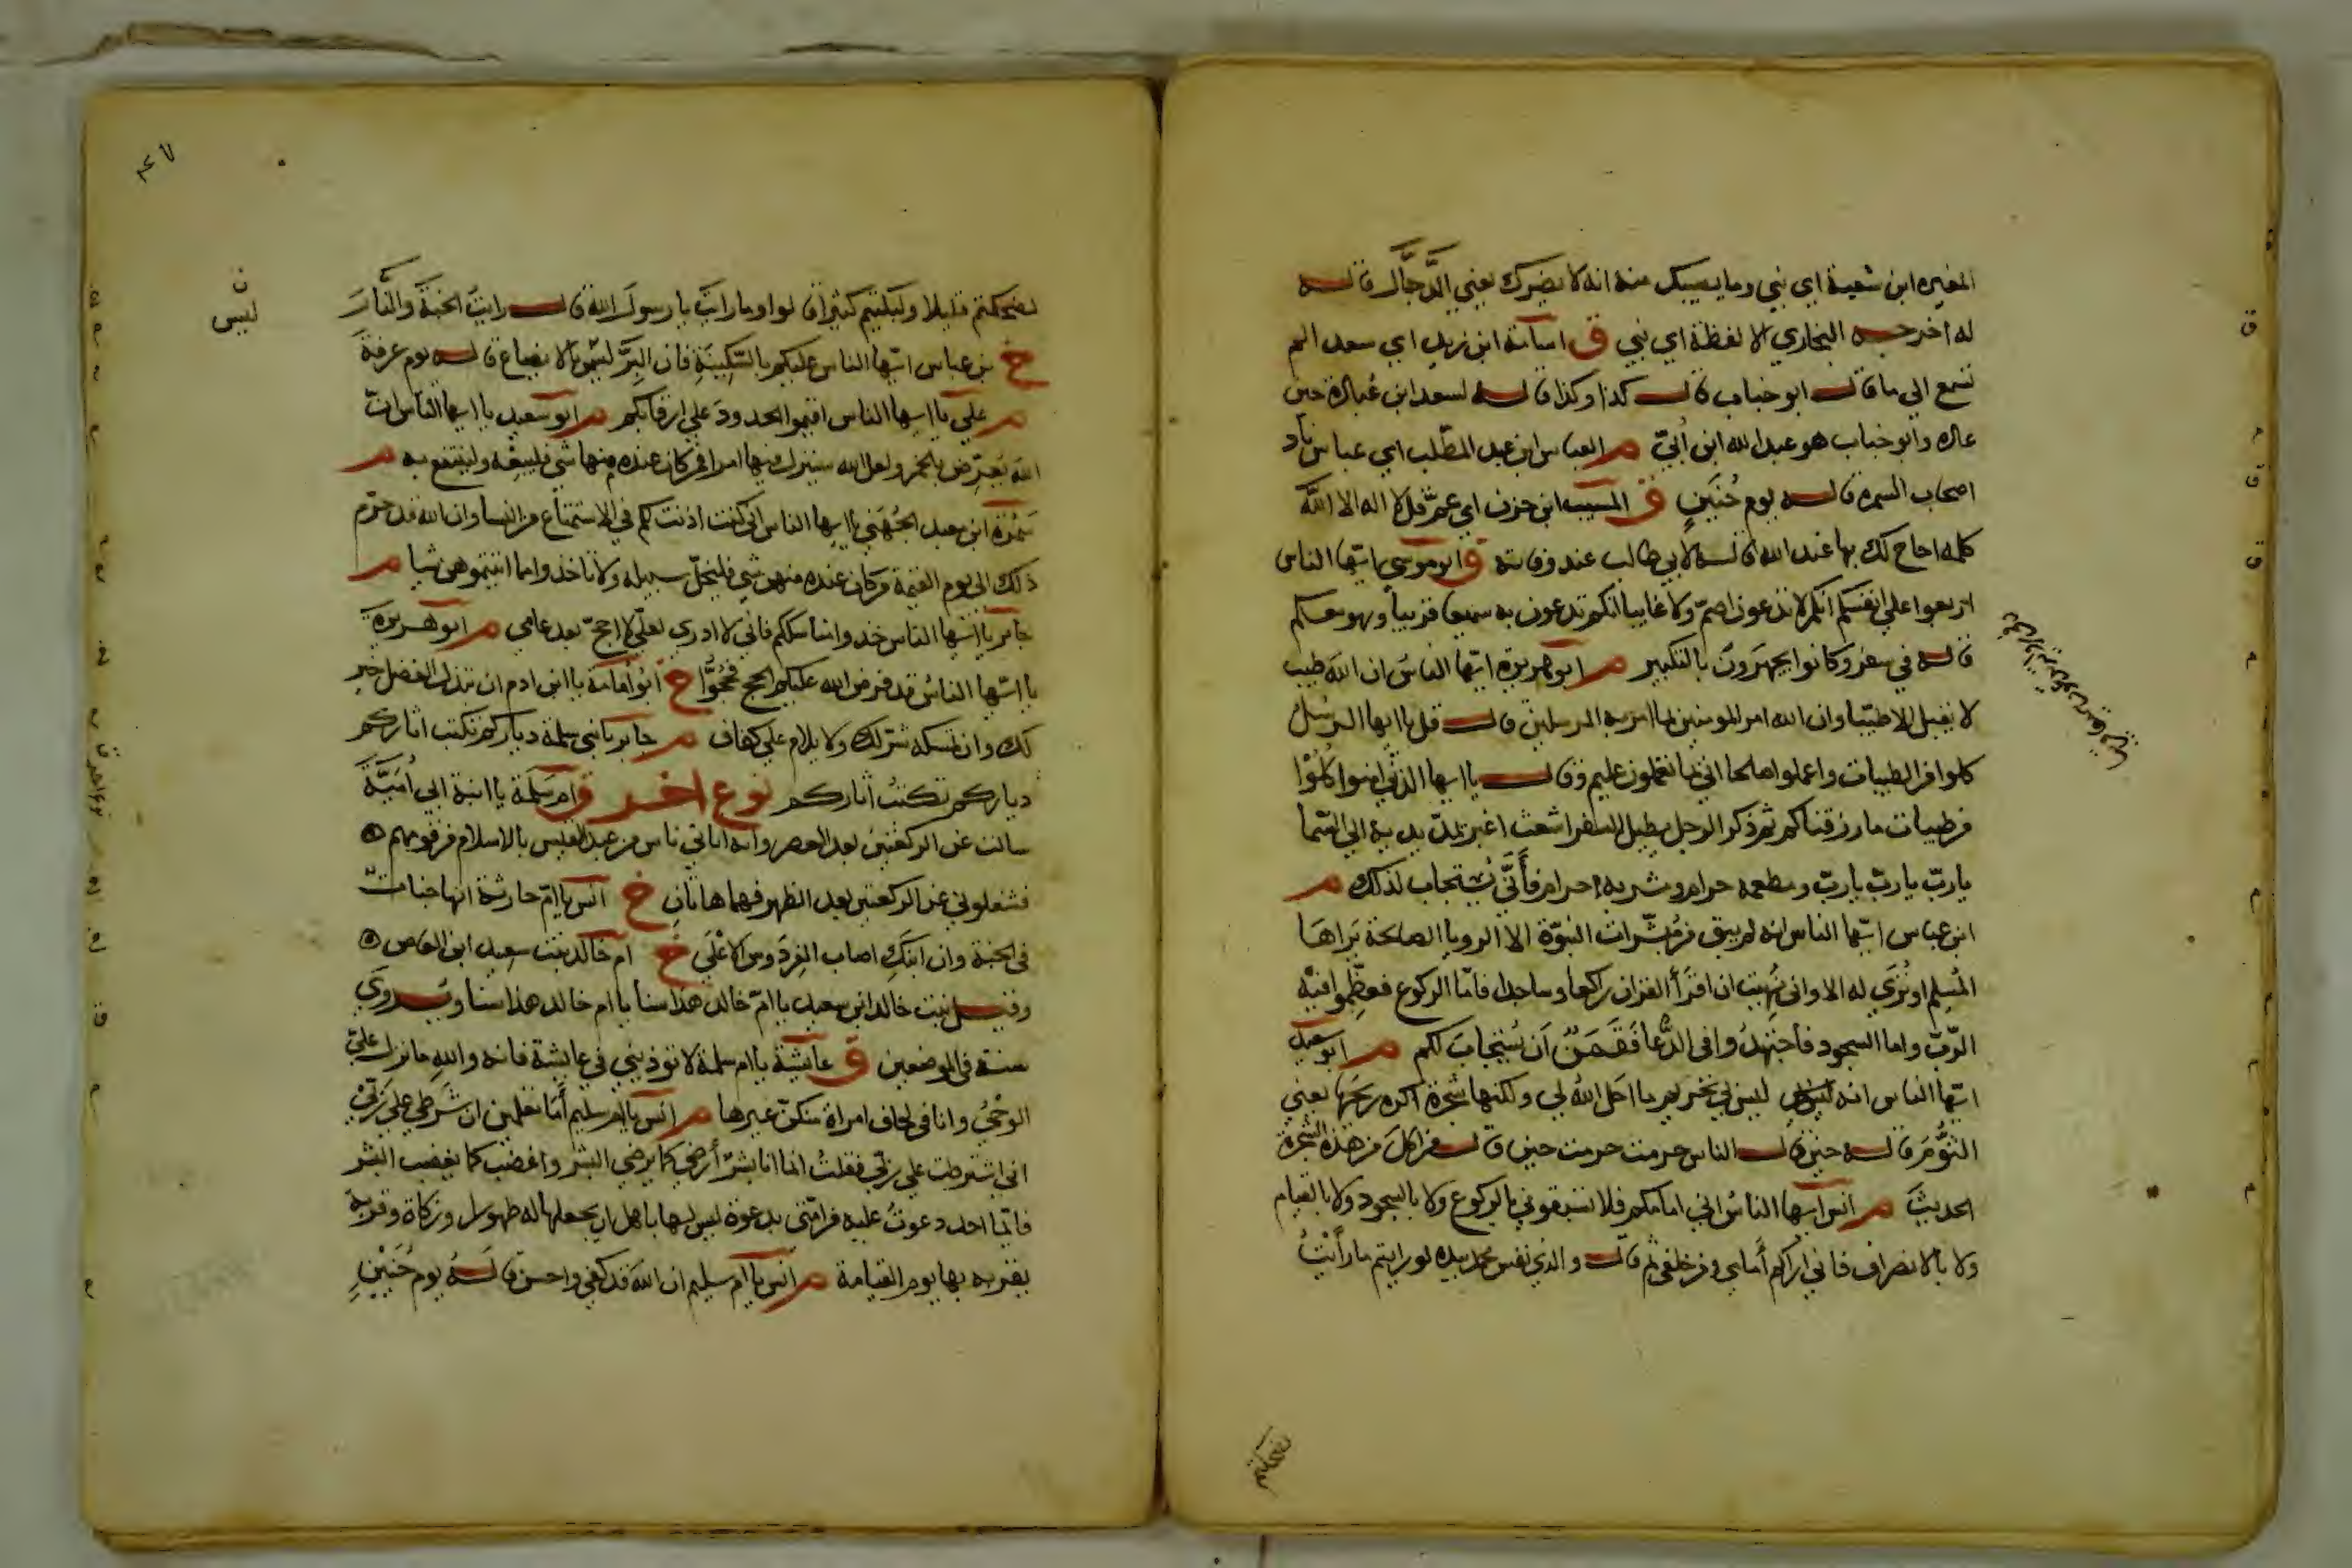 المغيره ابن شعبة اي بني وما يصيبك منه انه لا يضرك يعني الدَّجَّال قاله
له اخرجه البخاري الا لفظة اي بني ق اسامة ابن زيد اي سعد الم
تسمع الي ما قال ابو حباب قال كذا وكذا قاله لسعد ابن عُبادة حين
عاده وابو حباب هو عبد الله ابن اُبيّ م العباس ابن عبد المطّلب اي عباس ناد
اصحاب السمره قاله يوم حُنَينٍ ق المسيب ابن حزن اي عمّ قل لا اله الا الله
كلمه احاج لك بها عند الله قاله لابي طالب عند وفاته ق ابو موسي ايّها الناس
اربعوا علي انفسكم انكم لا تدعون اصمّ ولا غايبا انكم تدعون به سميعا قريبا وهو معكم
قاله في سفر وكانوا يجهرون بالتكبير م ابو هريرة ايّها الناسُ ان الله طيب
لا يقبل الا طيّبا وان الله امر المومنين بما امر به المرسلين قال قل يا ايها الرسُل
كلوا من الطيبات واعملوا صلحا اني بما تعملون عليم وقال يا ايها الذين امنوا كُلُوْا
من طيبات ما رزقناكم ثم ذكر الرجل يطيل السفر اشعث اغبر يمدّ يديه الي السّما
يا ربّ يا ربّ يا ربّ ومطعمه حرام ومشربه احرام فأَنّي يُستجاب لذلك م
ابن عباس ايّها الناس انه لم يبق من مُبَشّرات النبوّة الا الرويا الصالحة يَراهَا
المُسلِم او تُرَي له الا واني نُهِيت ان اقرَأ القران راكعا وساجدا فامّا الركوع فعظّموا فيْه
الرّبّ واما السجود فاجتهدُوا في الدُّعا فَقَمِنٌ اَن يُستجابَ لكم م ابو سعيد
ايّها الناس انه ليس لي تحريم ما احل الله لي ولكنها شجرة اكره ريحَهَا يعني
الثُّوم قاله حين قال الناس حرمت حرمت حين قال من اكل من هذه الشجرة
الحديث م انس ايّها الناسُ اني امامكم فلا تسبقوني بالركوع ولا بالسجود ولا بالقيام
ولا بالانصراف فاني اراكم أمامي ومن خلفي ثم قال والذي نفس محمد بيده لو رايتم ما رأيْتُ
لضحكتم قليلا ولبكيتم كثيرا قالوا وما رايتَ يا رسولَ الله قال رايتُ الجنةَ والنّارَ
ن
ليس
خ بن عباس ايّها الناس عليكم بالسَّكِينَةِ فان البِرَّ ليس بالايضاع قاله يوم عرفةَ
م علي يا ايها الناس اقيموا الحدودَ علي ارقائكم م ابو سعيد يا ايها الناس انّ
الله يُعرّض بالخمر ولعل الله سينزل فيها امرا فمن كان عنده منها شي فليبعْه ولينتفع به م
سَبُرَة ابن معبد الجُهَني يا ايها الناس اني كنت اذنت لكم في الاستمتاع من النسا وان الله قد حرّم
ذلك الي يوم القيمة فمن كان عنده منهن شي فليخلّ سبيله ولا تاخذوا مما اتيتموهن شيا م
جابر يا ايّها الناس خذوا مناسككم فاني لا ادري لعلّي لا احجّ بعد عامي م ابو هريرة
يا ايّها الناسُ قد فرض الله عليكم الحج فحُجُّوا خ ابو اُمامة يا ابن ادم ان تبذل الفضل خير
لك وان تمسكه شر لك ولا يلام علي كفاف م جابر يا بني سلمة دياركم تكتب اثاركم
دياركم تكتبُ اثاركم نوع اخر ق ام سَلمة يا ابنة ابي اُميَّةَ
سالت عن الركعتين بعد العصر وانه اتاني ناس من عبد القيس بالاسلام من قومهم
فشغلوني عن الركعتين بعد الظهر فهما هاتانِ خ انس يا امّ حارثة انها جنات
في الجنة وان ابنَكِ اصاب الفِردَوسَ الاعْلَي خ ام خالد بنت سعيد ابن العاص
وقيل بنت خالد ابن سعيد يا امّ خالد هذا سنا يا ام خالد هذا سنا ويُروي
سنة في الموضعين ق عايشة يا ام سلمة لا توذيني في عايشة فانه والله ما نزل عليّ
الوحْيُ وانا في لحاف امراة منكنّ غيرها م انس يا ام سليم أما تعلمين ان شَرطي علي رَبّيْ
اني اشترطت علي ربّي فقلتُ انما انا بشرٌ أرضي كما يرضي البشر واغضب كما يغضب البشر
فايّما احد دعوتُ عليه من امّتي بدعوة ليس لها باهل ان يجعلها له طهورا وزكاة وقربة
يقربه بها يوم القيامة م انس يا ام سليم ان الله قد كفي واحسن قاله يوم حُنَيْنٍ